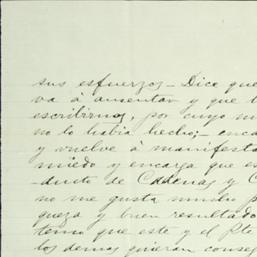 sus esfuerzos_ Dice que
va á ausentar y que
escribirnos, por cuyo
no lo habia hecho;- enca
y vuelve á manifesta
miedo y encarga que es
ducto de Cadenas y C
no me gusta mucho p
queza y buen resultado
temo que este y el
los demas quieran conse